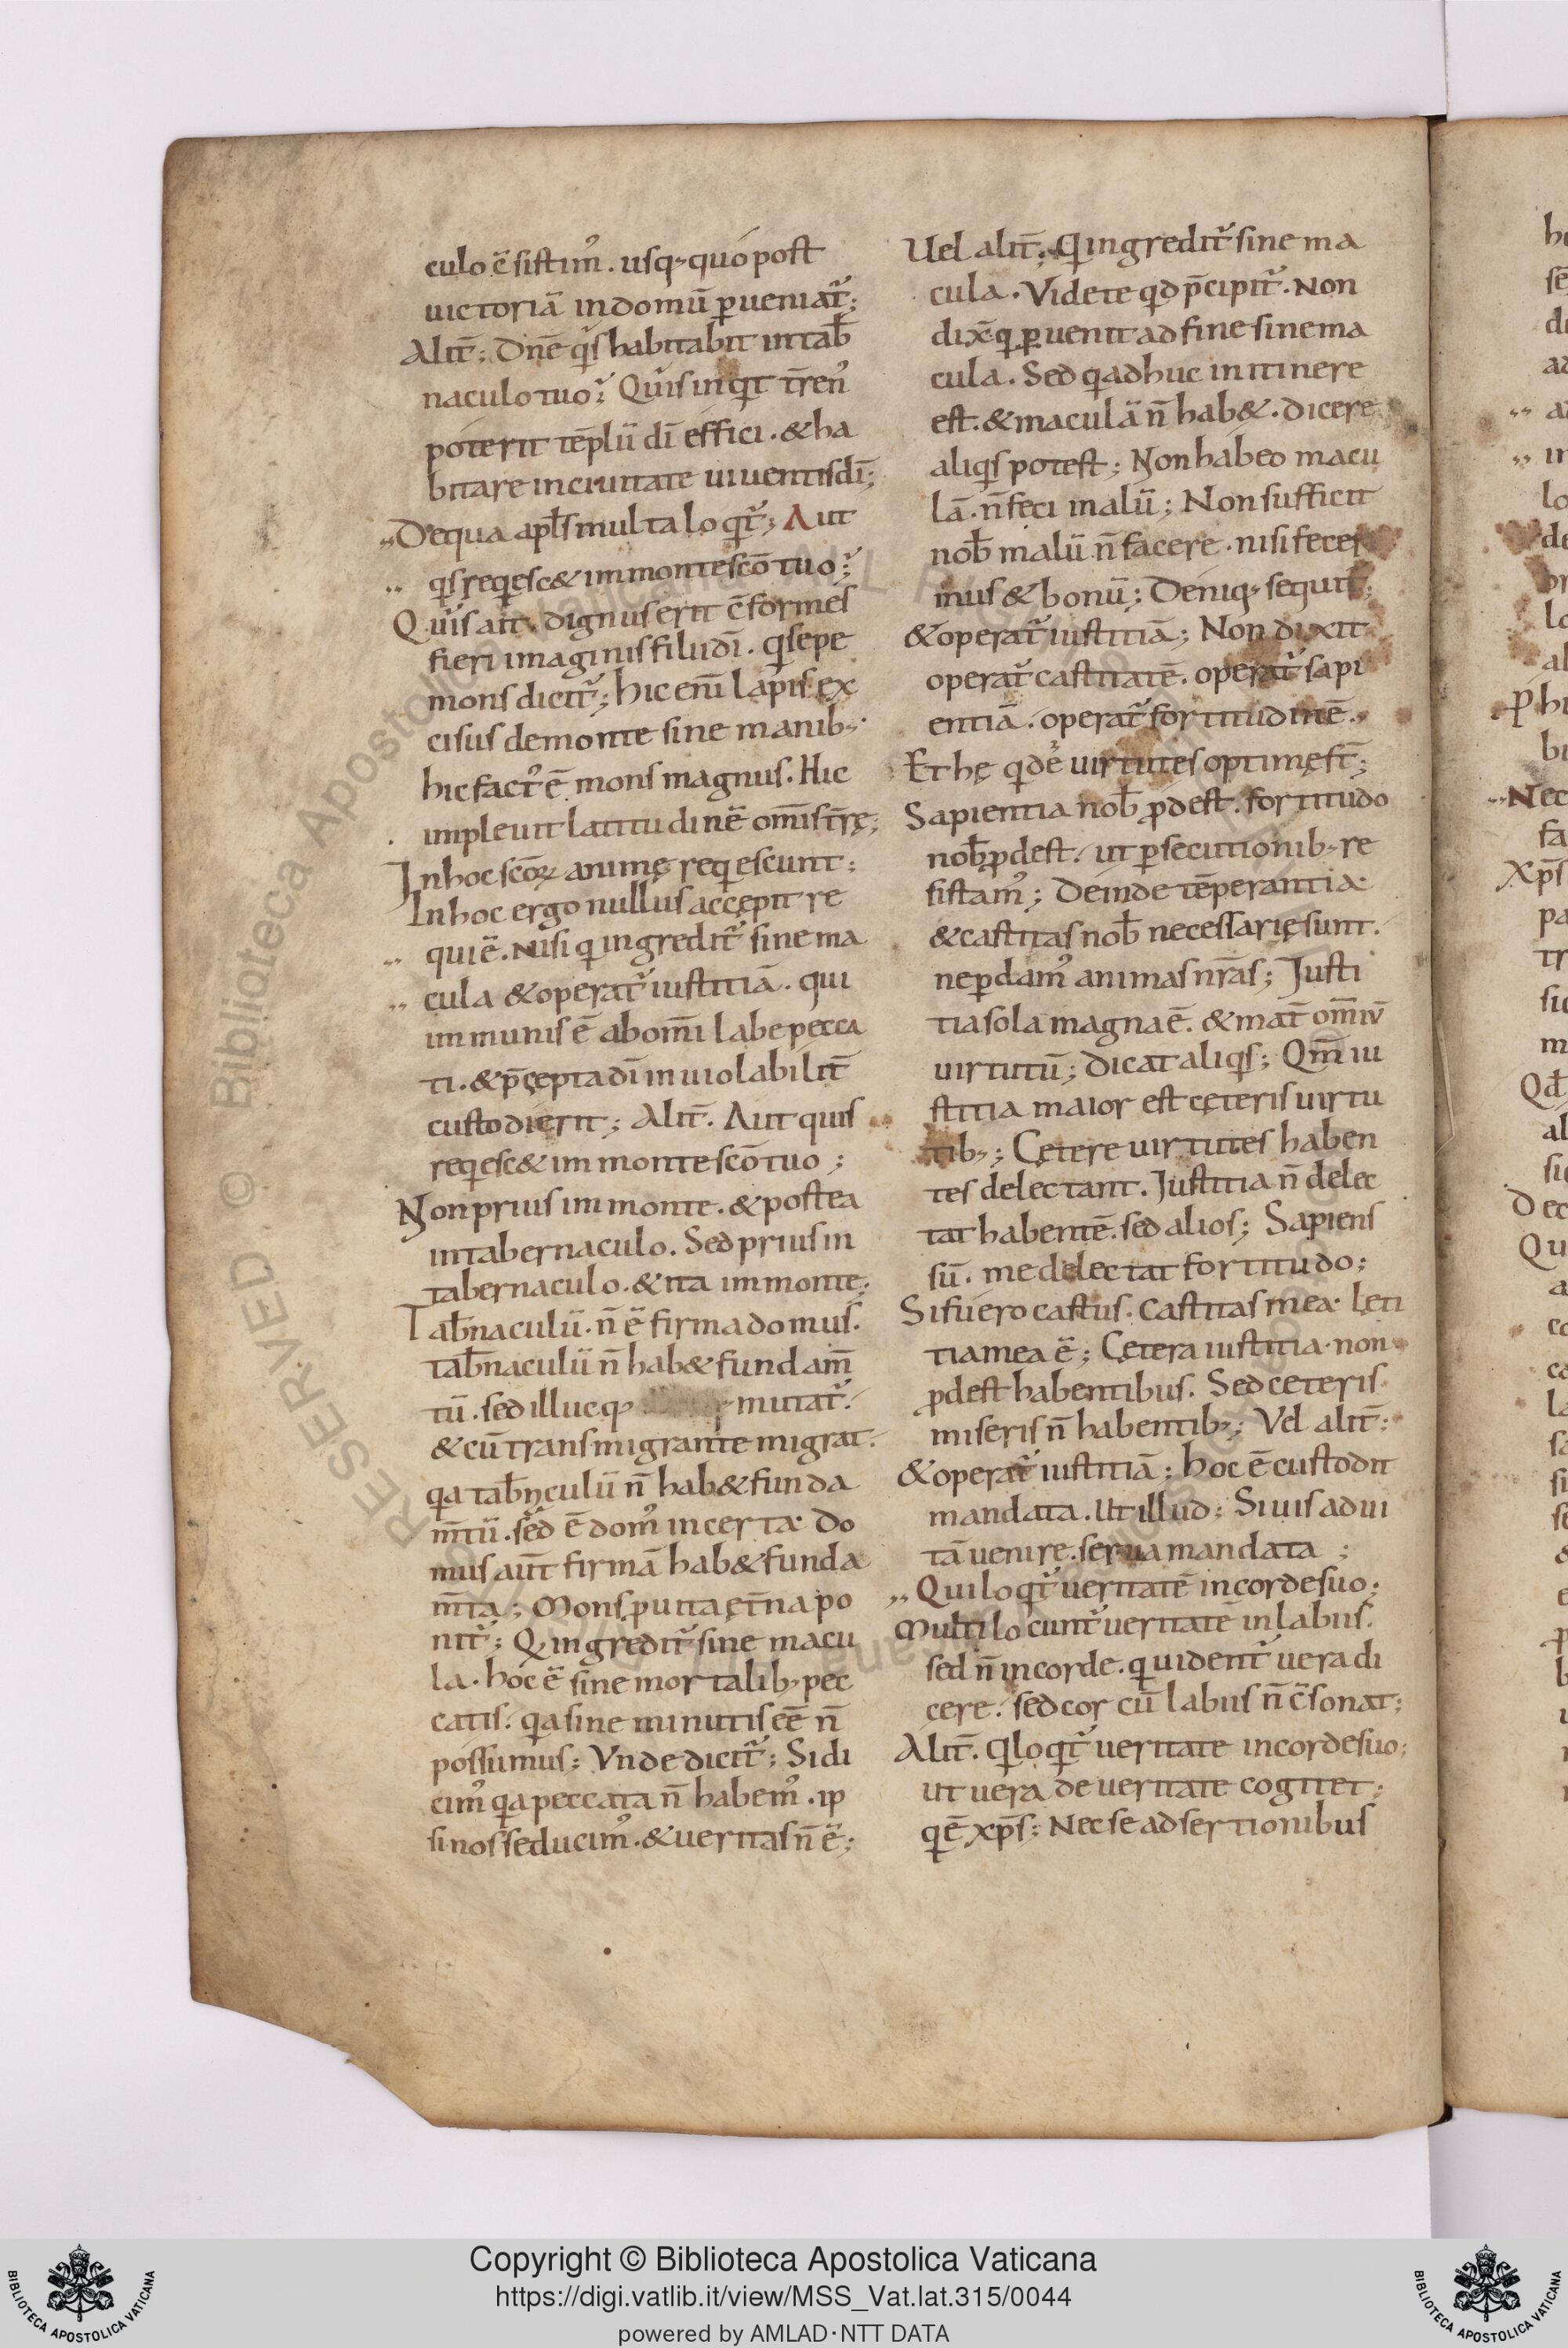 culo c̄ sistim᾽. usq; quo post
uictoriā in domū ꝑueniat᷑;
Alit̄; Dn̄e q̣s habitabit in tab̄
naculo tuo? Quis inqt t̄ren᾽
poterit tēplū dī effici. & ha
bitare in ciuitate uiuentis dī;
Dequa apl̄s multa loqt᷑; Aut
q̣s reqesc& im monte scō tuo?
Quis ait. dignus erit c̄formes
fieri imaginis filii dī. q̣ sepe
mons dicit᷑; hic enī lapis ex
cisus de monte sine manib;.
hic fact᾽ ē mons magnus. Hic
impleuit latitudinē om̄is t̄rę;
In hoc scōꝝ animę reqescunt;
In hoc ergo nullus accępit re
quiē. Nisi q ingredit᷑ sine ma
cula & operat᷑ iustitiā. qui
im munis ē ab om̄i labe pecca
ti. & p̄cepta dī inuiolabilit̄
custodierit; Alit̄. Aut quis
reqesc& im monte scō tuo;
Non prius im monte. & postea
in tabernaculo. Sed prius in
tabernaculo. & ita im monte;
Tab̄naculū. n̄ ē firma domus.
tab̄naculū n̄ hab& fundam̄
tū. sed illuc q; mutat᷑.
& cū transmigrante migrat.
qa tab̄nculū n̄ hab& funda
m̄tū. sed ē dom᾽ incerta. Do
mus aut̄ firmā hab& funda
m̄ta; Mons ꝓ uita et̄na po
nit᷑; Q ingredit᷑ sine macu
la. hoc ē sine mortalib; pec
catis. qa sine minutis eē n̄
possumus; Vnde dicit᷑; Si di
cim᾽ qa peccata n̄ habem᾽. ip
si nos seducim᾽. & ueritas n̄ ē;
Uel alit̄; Q ingredit᷑ sine ma
cula. Videte qd p̄cipit᷑. Non
dix̄ q ꝑuenit ad fine sine ma
cula. Sed q adhuc in itinere
est. & maculā n̄ hab&. dicere
aliqs potest; Non habeo macu
lā. n̄ feci malū; Non sufficit
nob̄ malū n̄ facere. nisi fecer
mus & bonū; Deniq; sequit᷑;
& operat᷑ iustitiā; Non dixit
operat᷑ castitatē. operat᷑ sapi
entiā. operat᷑ fortitudinē.
Et hę qdē uirtutes optimę st̄;
Sapientia nob̄ ꝓdest. fortitudo
nob̄ ꝓdest. ut ꝑsecutionib; re
sistam᾽; Deinde tēperantia
& castitas nob̄ necessarię sunt.
ne ꝑdam᾽ animas nr̄as; Justi
tia sola magna ē. & mat̄ om̄iū
uirtutū; Dicat aliqs; Qm̄ iu
stitia maior est cęteris uirtu
tib;; Cętere uirtutes haben
tes delectant. Justitia n̄ delec
tat habentē. sed alios; Sapiens
sū. me delectat fortitudo;
Si fuero castus. castitas mea. lęti
tia mea ē; Cętera iustitia. non
ꝓdest habentibus. Sed ceteris
miseris n̄ habentib;; Vel alit̄;
& operat᷑ iustitiā; hoc ē custodit
mandata. Ut illud; Si uis ad ui
tā uenire. serua mandata;
Qui loqt᷑ ueritatē in corde suo;
Multi locunt᷑ ueritatē in labiis.
sed n̄ in corde. q uident᷑ uera di
cere. sed cor cū labiis n̄ c̄sonat;
Alit̄. Q loqt᷑ ueritate in corde suo;
ut uera de ueritate cogitet;
q ē xp̄s; Nec se adsertionibus
Copyright © Biblioteca Apostolica Vaticana
https://digi.vatlib.it/view/MSS_Vat.lat.315/0044
powered by AMLAD·NTT DATA